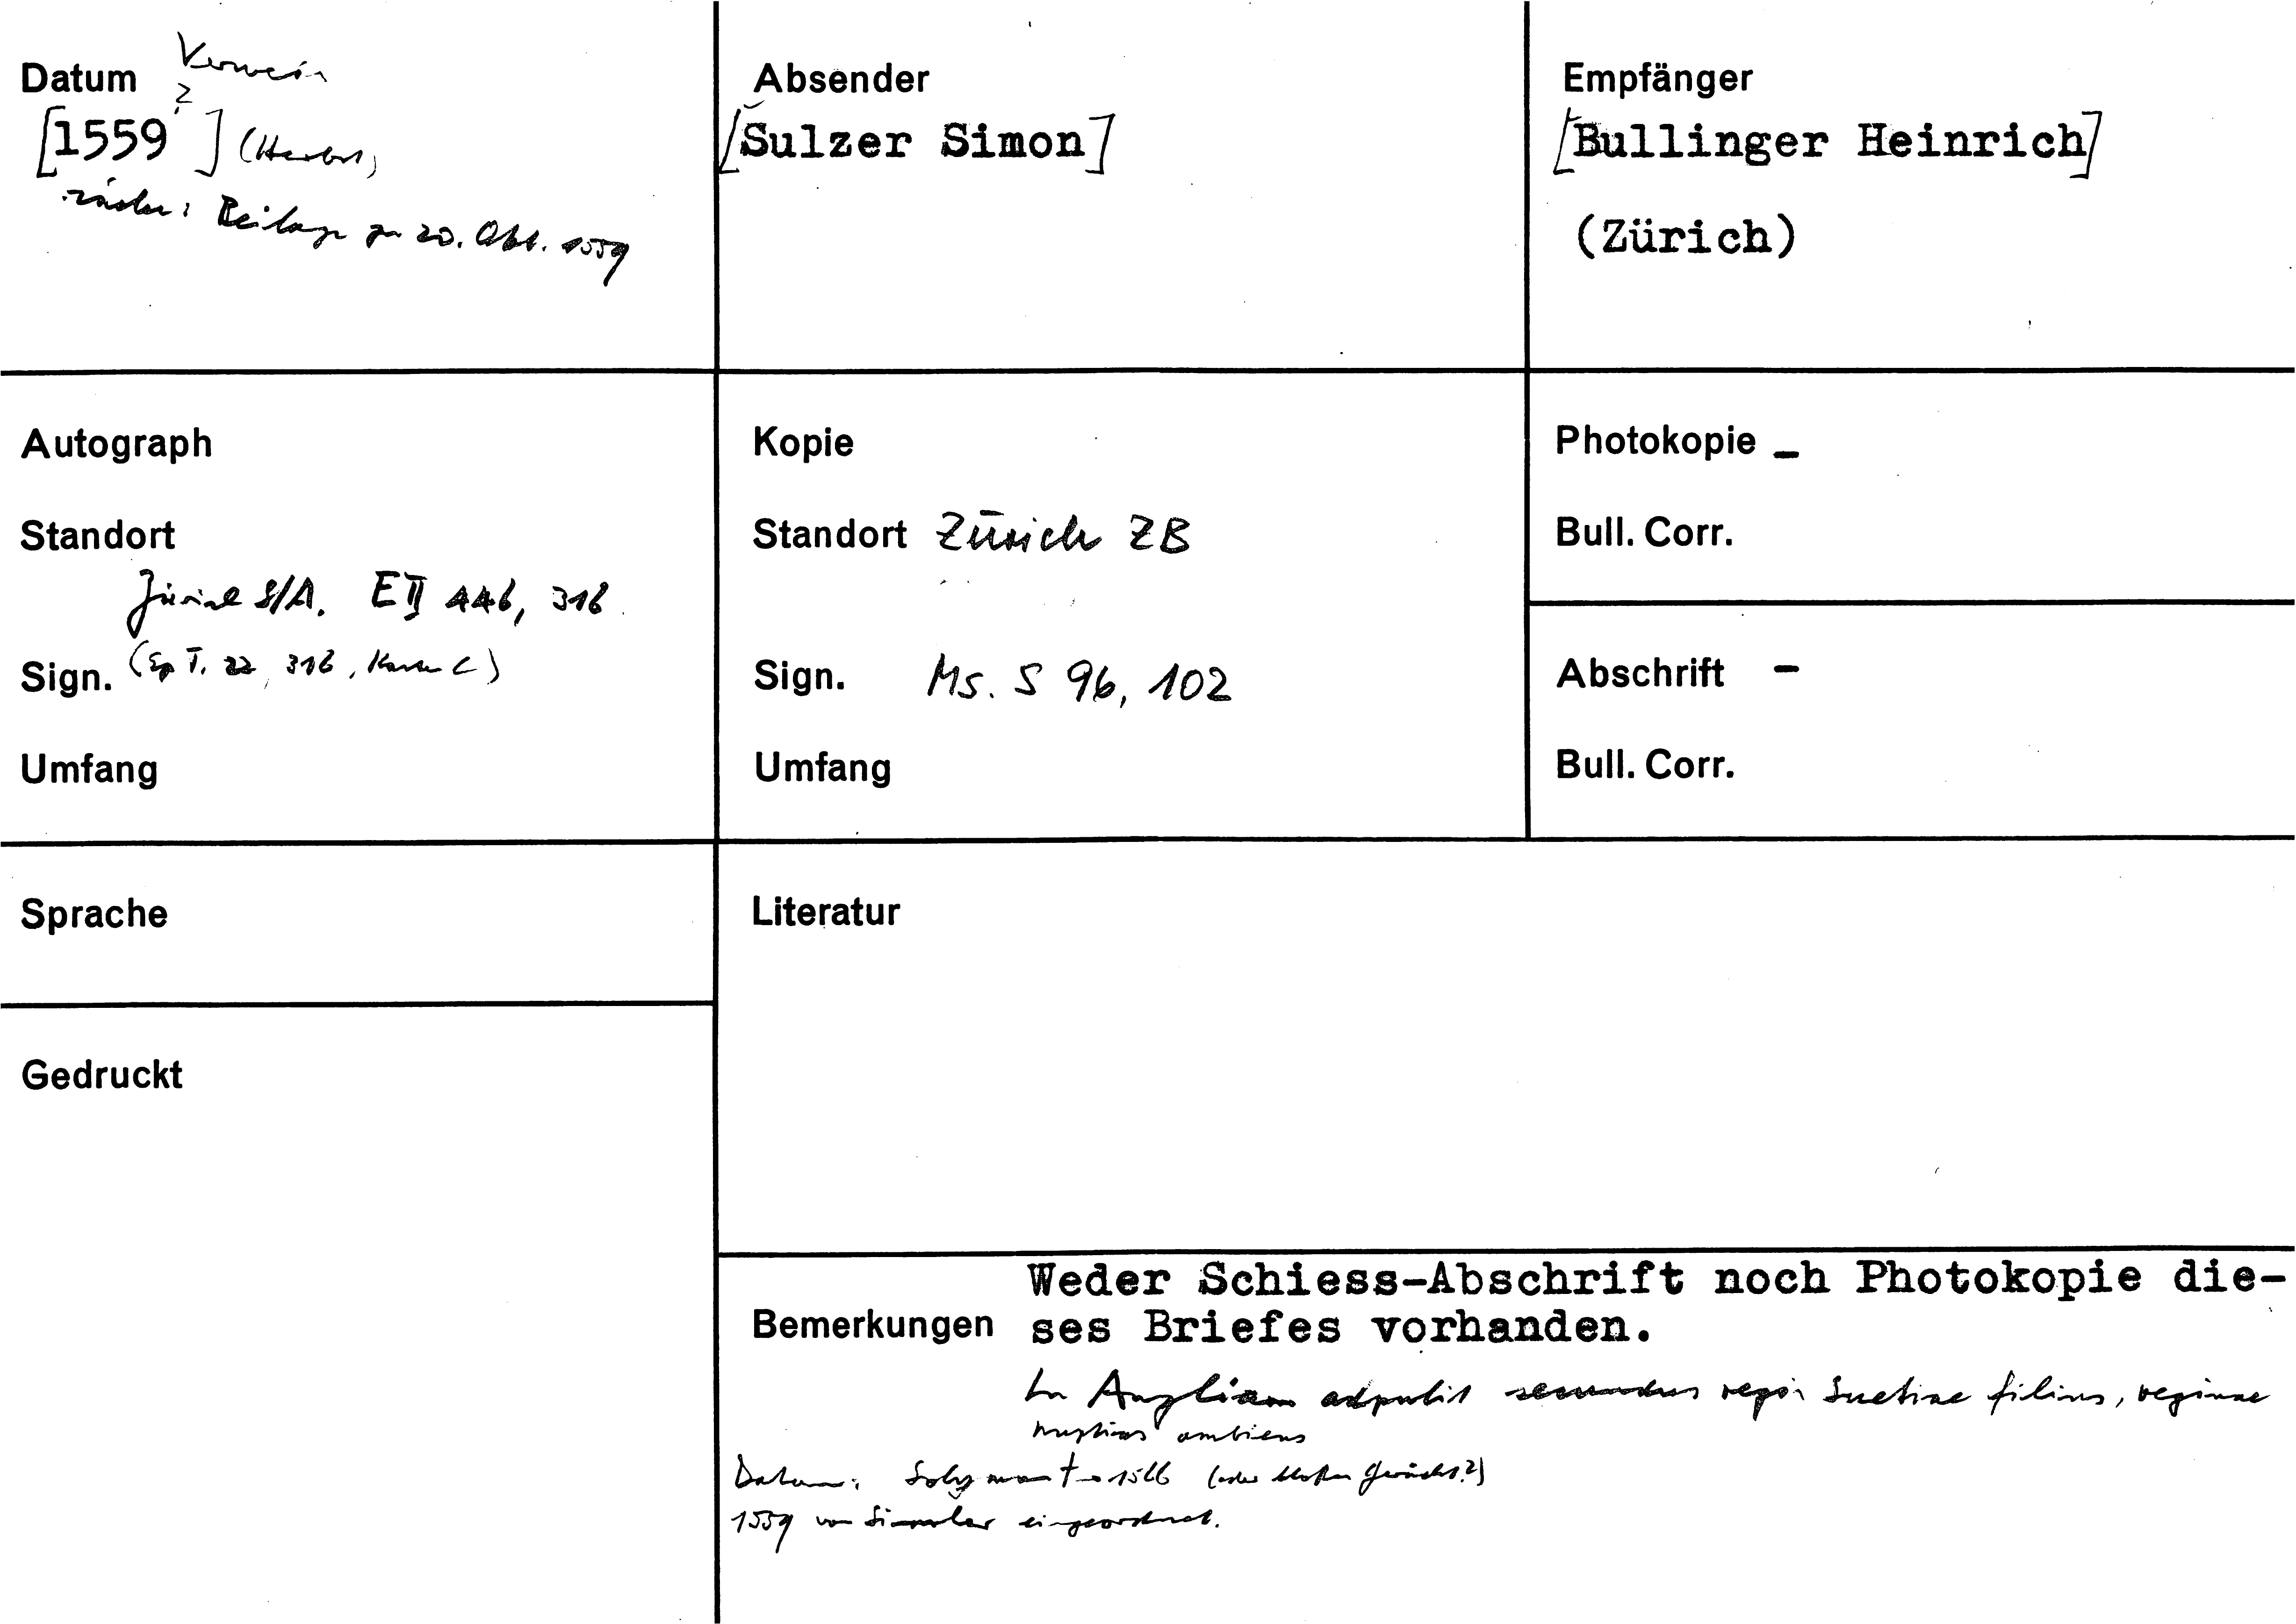 Datum Verweis
?
[1559] (Herbst)
Beilage zu 20. Okt. 1559
Absender
[Sulzer Simon]
Empfänger
[Bullinger Heinrich]
(Zürich)
Autograph
Standort
Zürich StA, E II 446, 316
Sign. (Ep T. 22, 316,
Umfang
Kopie
Standort Zürich ZB
Sign. Ms. S 96, 102
Umfang
Photokopie –
Bull. Corr.
Abschrift –
Bull. Corr.
Sprache
Gedruckt
Literatur
Weder Schiess-Abschrift noch Photokopie die-
Bemerkungen ses Briefes vorhanden.
In Angliam adpulit secundus regis Suetiae filius, reginae
nuptias ambiens
Datum: Solyman † 1566 (oder blosses Gerücht?)
1559 von Simmler eingeordnet.